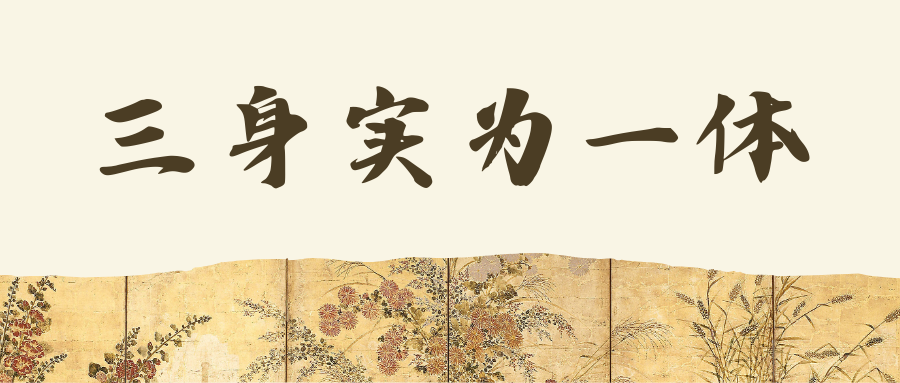 三身实为一体